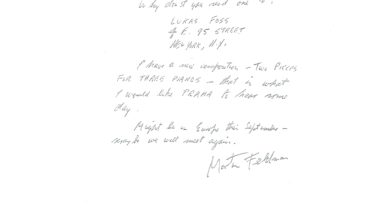 Why don't you send one to:
LUKAS FOSS
E. 95 STREET
NEW YORK, N.Y.
I have a new composition - TWO PIECES
FOR THREE PIANOS - that is what
I would like PRAHA to hear some
day.
Might be in Europe this September -
maybe we will meet again.
Morton Feldman